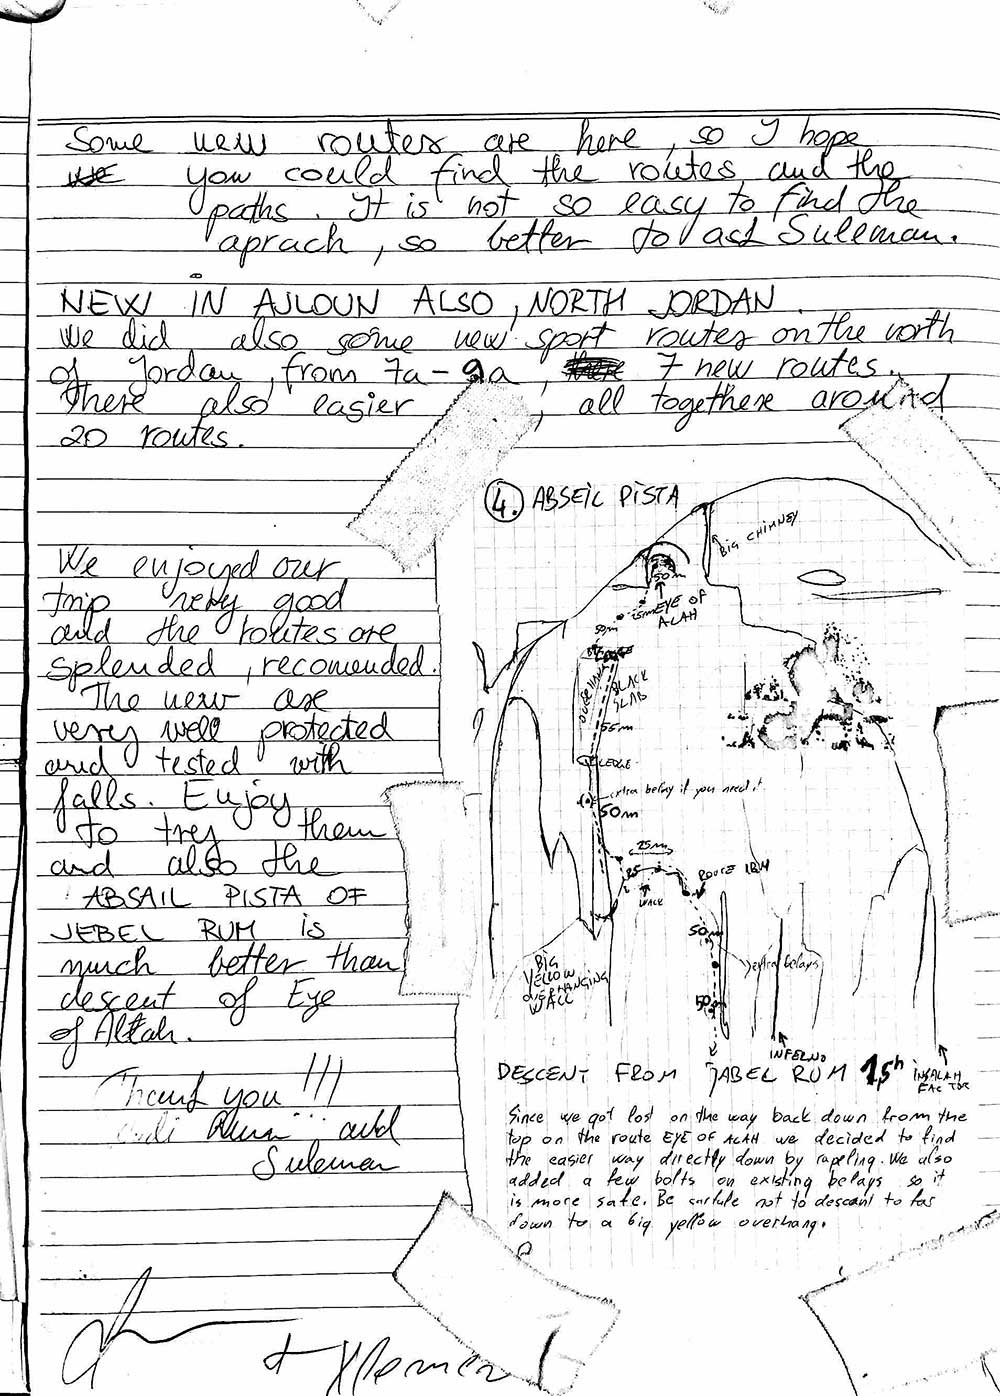 Some new routes are here, so I hope
you could find the routes and the
paths. It is not so easy to find the
aprach, so better to ask Suleman.
NEW IN AJLOUN ALSO, NORTH JORDAN
We did also some new sport routes on the north
of Jordan, from 7a-9a, 7 new routes.
There also easier, all togethere around
20 routes.
We enjoyed our
trip very good
and the routes are
splended, recomended.
The new are
very well protected
and tested with
falls. Enjoy
to trey them
and also the
ABSAIL PISTA OF
JEBEL RUM is
much better than
descent of Eye
of Allah.
Thank you !!!
and
Suleman
4. ABSEIL PISTA
BIG CHIMNEY
50m
15m EYE OF
ALAH
50m
LEDGE
OVERHANG
BLACK
SLAB
55m
LEDGE
extra belay if you need it
50m
25m
25
WALK
ROUTE IBM
50m
extra belays
50m
BIG
YELLOW
OVERHANGING
WALL
INFERNO
INSALAH
FACTOR
DESCENT FROM JABEL RUM 1,5h
Since we got lost on the way back down from the
top on the route EYE OF ALAH we decided to find
the easier way directly down by rapeling. We also
added a few bolts on existing belays so it
is more safe. Be carfule not to descant to far
down to a big yellow overhang.